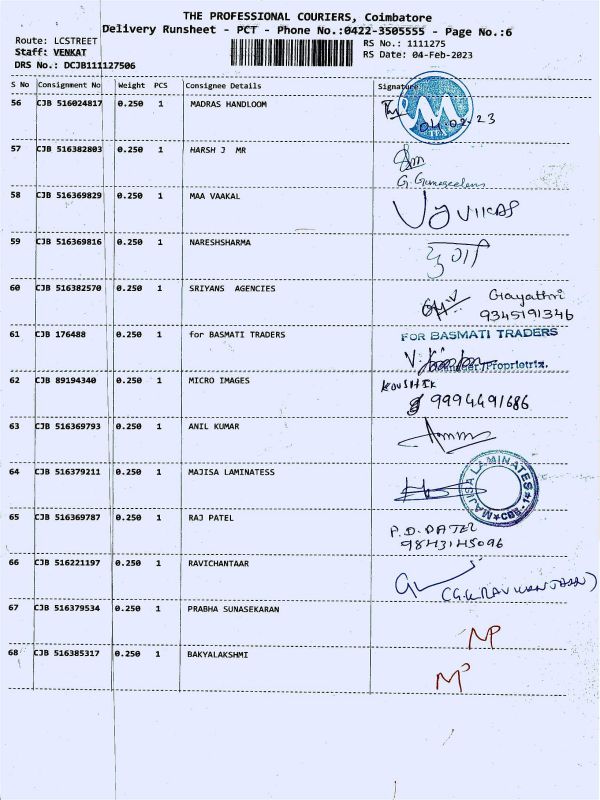 THE PROFESSIONAL COURIERS, Coimbatore
Delivery Runsheet - PCT - Phone No.:0422-3505555 - Page No.:6
Route: LCSTREET
Staff: VENKAT
DRS No.: DCJB111127506
RS No.: 1111275
RS Date: 04-Feb-2023
S No Consignment No Weight PCS Consignee Details Signature
56 CJB 516024817 0.250 1 MADRAS HANDLOOM
04.02.23
57 CJB 516382803 0.250 1 HARSH J MR
58 CJB 516369829 0.250 1 MAA VAAKAL
VIKAS
59 CJB 516369816 0.250 1 NARESHSHARMA
60 CJB 516382570 0.250 1 SRIYANS AGENCIES
Gayathri
9345191346
61 CJB 176488 0.250 1 for BASMATI TRADERS FOR BASMATI TRADERS
Proprietrix.
62 CJB 89194340 0.250 1 MICRO IMAGES KOUSHIK
9994491686
63 CJB 516369793 0.250 1 ANIL KUMAR
64 CJB 516379211 0.250 1 MAJISA LAMINATESS
MAJISA LAMINATES ★ CBE-1 ★
65 CJB 516369787 0.250 1 RAJ PATEL P.D. PATEL
9843145096
66 CJB 516221197 0.250 1 RAVICHANTAAR
67 CJB 516379534 0.250 1 PRABHA SUNASEKARAN
NP
68 CJB 516385317 0.250 1 BAKYALAKSHMI